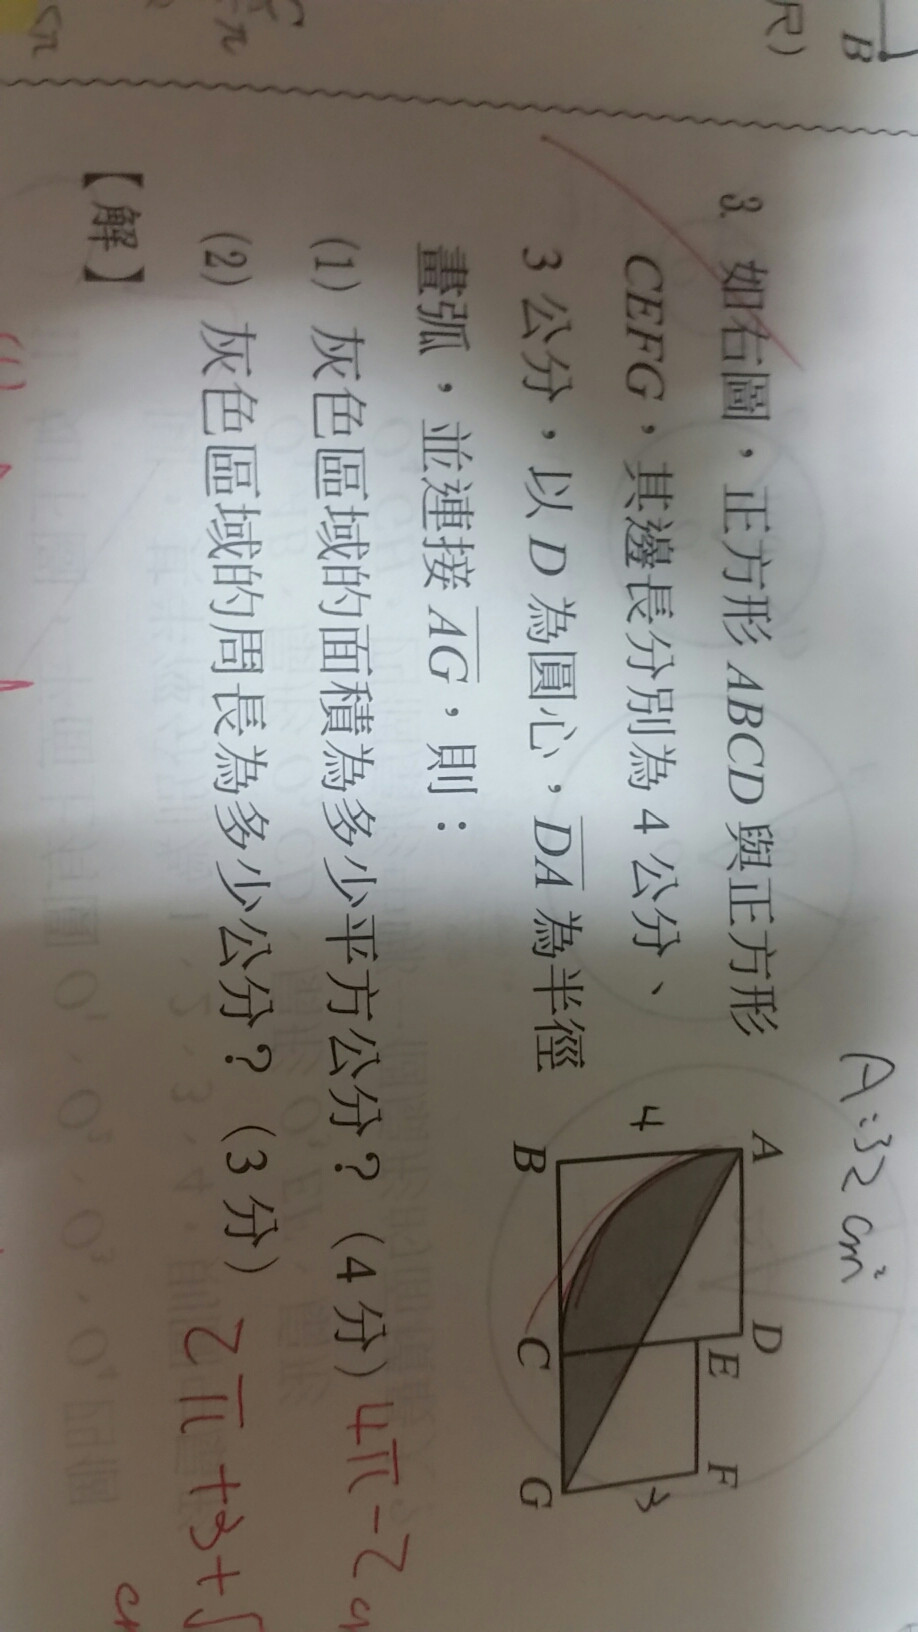 B
尺)
A:32 cm²
3. 如右圖，正方形 ABCD 與正方形
CEFG，其邊長分別為 4 公分、
3 公分，以 D 為圓心，DA 為半徑
畫弧，並連接 AG，則：
(1) 灰色區域的面積為多少平方公分？（4 分）4π-2
(2) 灰色區域的周長為多少公分？（3 分）2π+3+√
【解】
(1)
A
D
4
E
F
3
B
C
G